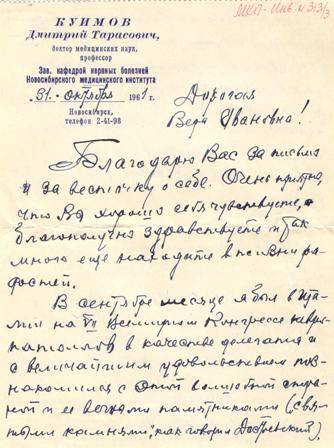 МКП-Инв. N 313/3
КУИМОВ
Дмитрий Тарасович,
доктор медицинских наук,
профессор
Зав. кафедрой нервных болезней
Новосибирского медицинского института
"31" октября 1961 г.
Новосибирск,
телефон 2-41-98
Дорогая
Вера Ивановна!
Благодарю Вас за письмо
и за весточку о себе. Очень приятно,
что Вы хорошо себя чувствуете,
благополучно здравствуете и так
много еще находите в жизни ра-
достей.
В сентябре месяце я был в Ита-
лии на VII Всемирном Конгрессе невро-
патологов в качестве делегата и
с величайшим удовольствием поз-
накомился с этой волшебной стра-
ной и ее вечными памятниками ("свя-
тыми камнями", как говорил Достоевский)